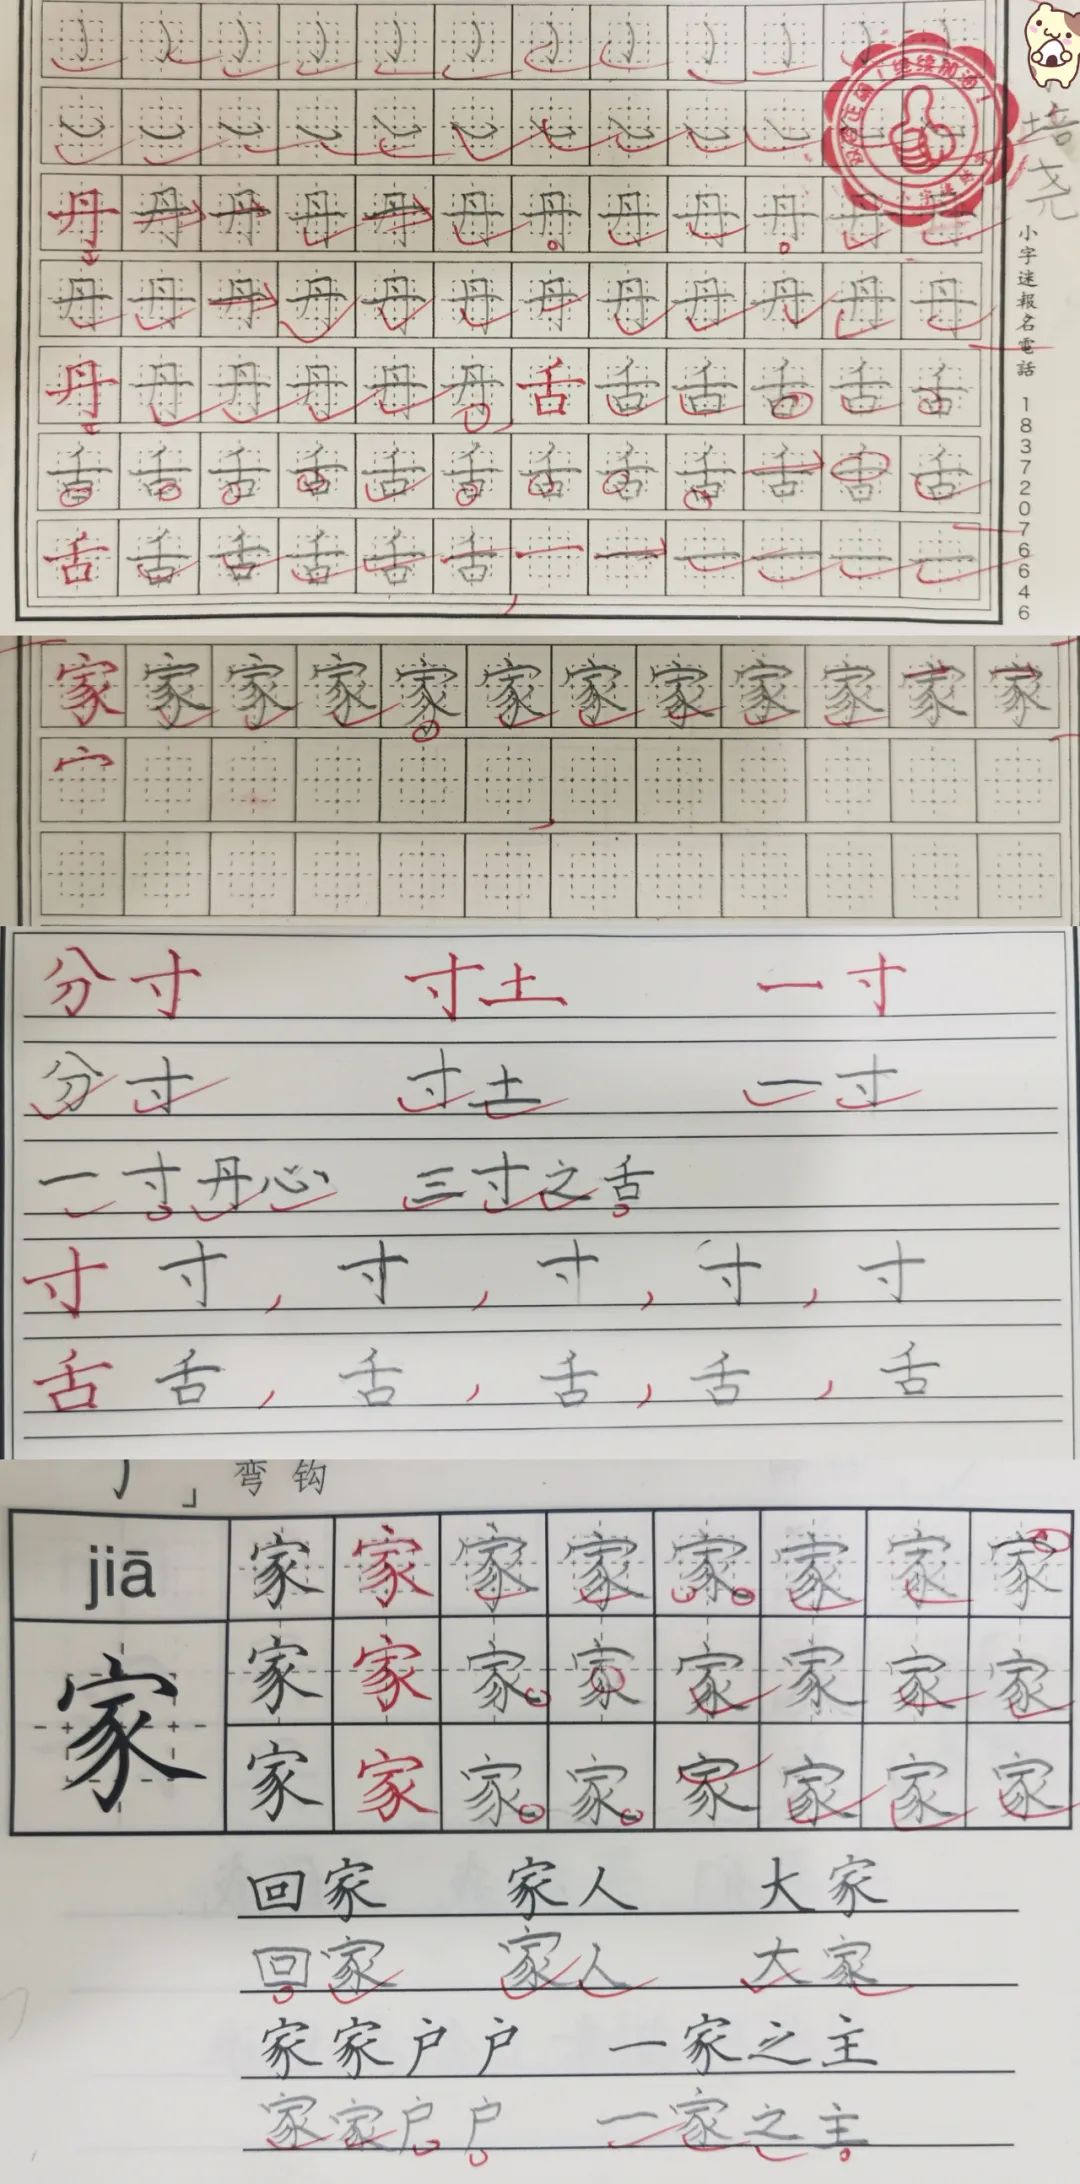 丹 丹 丹 丹 丹 丹 丹 丹 丹 丹 丹 丹
丹 丹 丹 丹 丹 丹 丹 丹 丹 丹 丹 丹
丹 丹 丹 丹 丹 丹 舌 舌 舌 舌 舌 舌
舌 舌 舌 舌 舌 舌 舌 舌 舌 舌 舌 舌
舌 舌 舌 舌 舌 舌 一 一 一 一 一 一
培尧
小字迷報名電話 18372076646
家 家 家 家 家 家 家 家 家 家 家 家
宀
分寸 寸土 一寸
分寸 寸土 一寸
一寸丹心 三寸之舌
寸 寸 寸 寸 寸 寸
舌 舌 舌 舌 舌 舌
弯钩
jiā 家 家 家 家 家 家 家 家
家 家 家 家 家 家 家 家 家
家 家 家 家 家 家 家 家
回家 家人 大家
回家 家人 大家
家家户户 一家之主
家家户户 一家之主